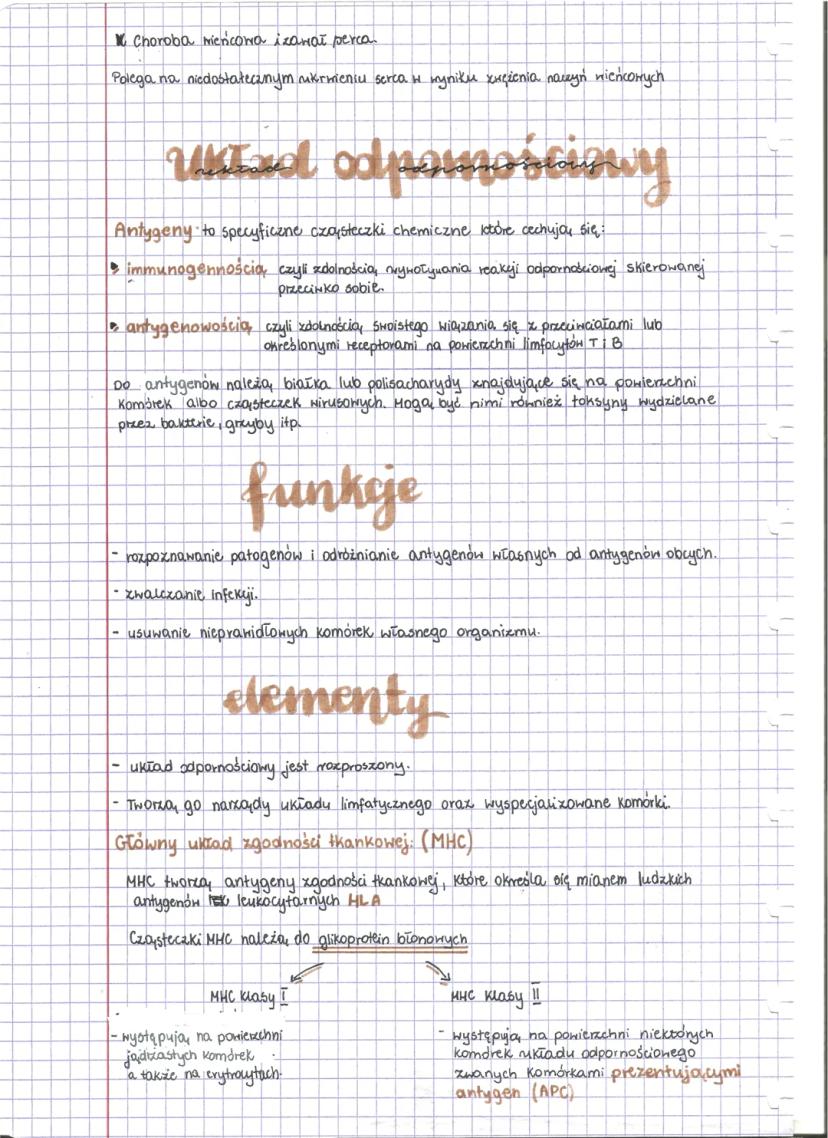 Choroba wieńcowa i zawał serca.
Polega na niedostatecznym ukrwieniu serca w wyniku zwężenia naczyń wieńcowych
Układ odpornościowy
układ odpornościowy
Antygeny to specyficzne cząsteczki chemiczne które cechują się:
immunogennością czyli zdolnością wywoływania reakcji odpornościowej skierowanej
przeciwko sobie.
antygenowością czyli zdolnością swoistego wiązania się z przeciwciałami lub
określonymi receptorami na powierzchni limfocytów T i B
Do antygenów należą białka lub polisacharydy znajdujące się na powierzchni
komórek albo cząsteczek wirusowych. Mogą być nimi również toksyny wydzielane
przez bakterie, grzyby itp.
funkcje
- rozpoznawanie patogenów i odróżnianie antygenów własnych od antygenów obcych.
- zwalczanie infekcji.
- usuwanie nieprawidłowych komórek własnego organizmu.
elementy
- układ odpornościowy jest rozproszony.
- Tworzą go narządy układu limfatycznego oraz wyspecjalizowane komórki.
Główny układ zgodności tkankowej: (MHC)
MHC tworzą antygeny zgodności tkankowej, które określa się mianem ludzkich
antygenów leukocytarnych HLA
Cząsteczki MHC należą do glikoprotein błonowych
MHC klasy I MHC klasy II
- występują na powierzchni - występują na powierzchni niektórych
jądrzastych komórek komórek układu odpornościowego
a także na erytrocytach. zwanych komórkami prezentującymi
antygen (APC)